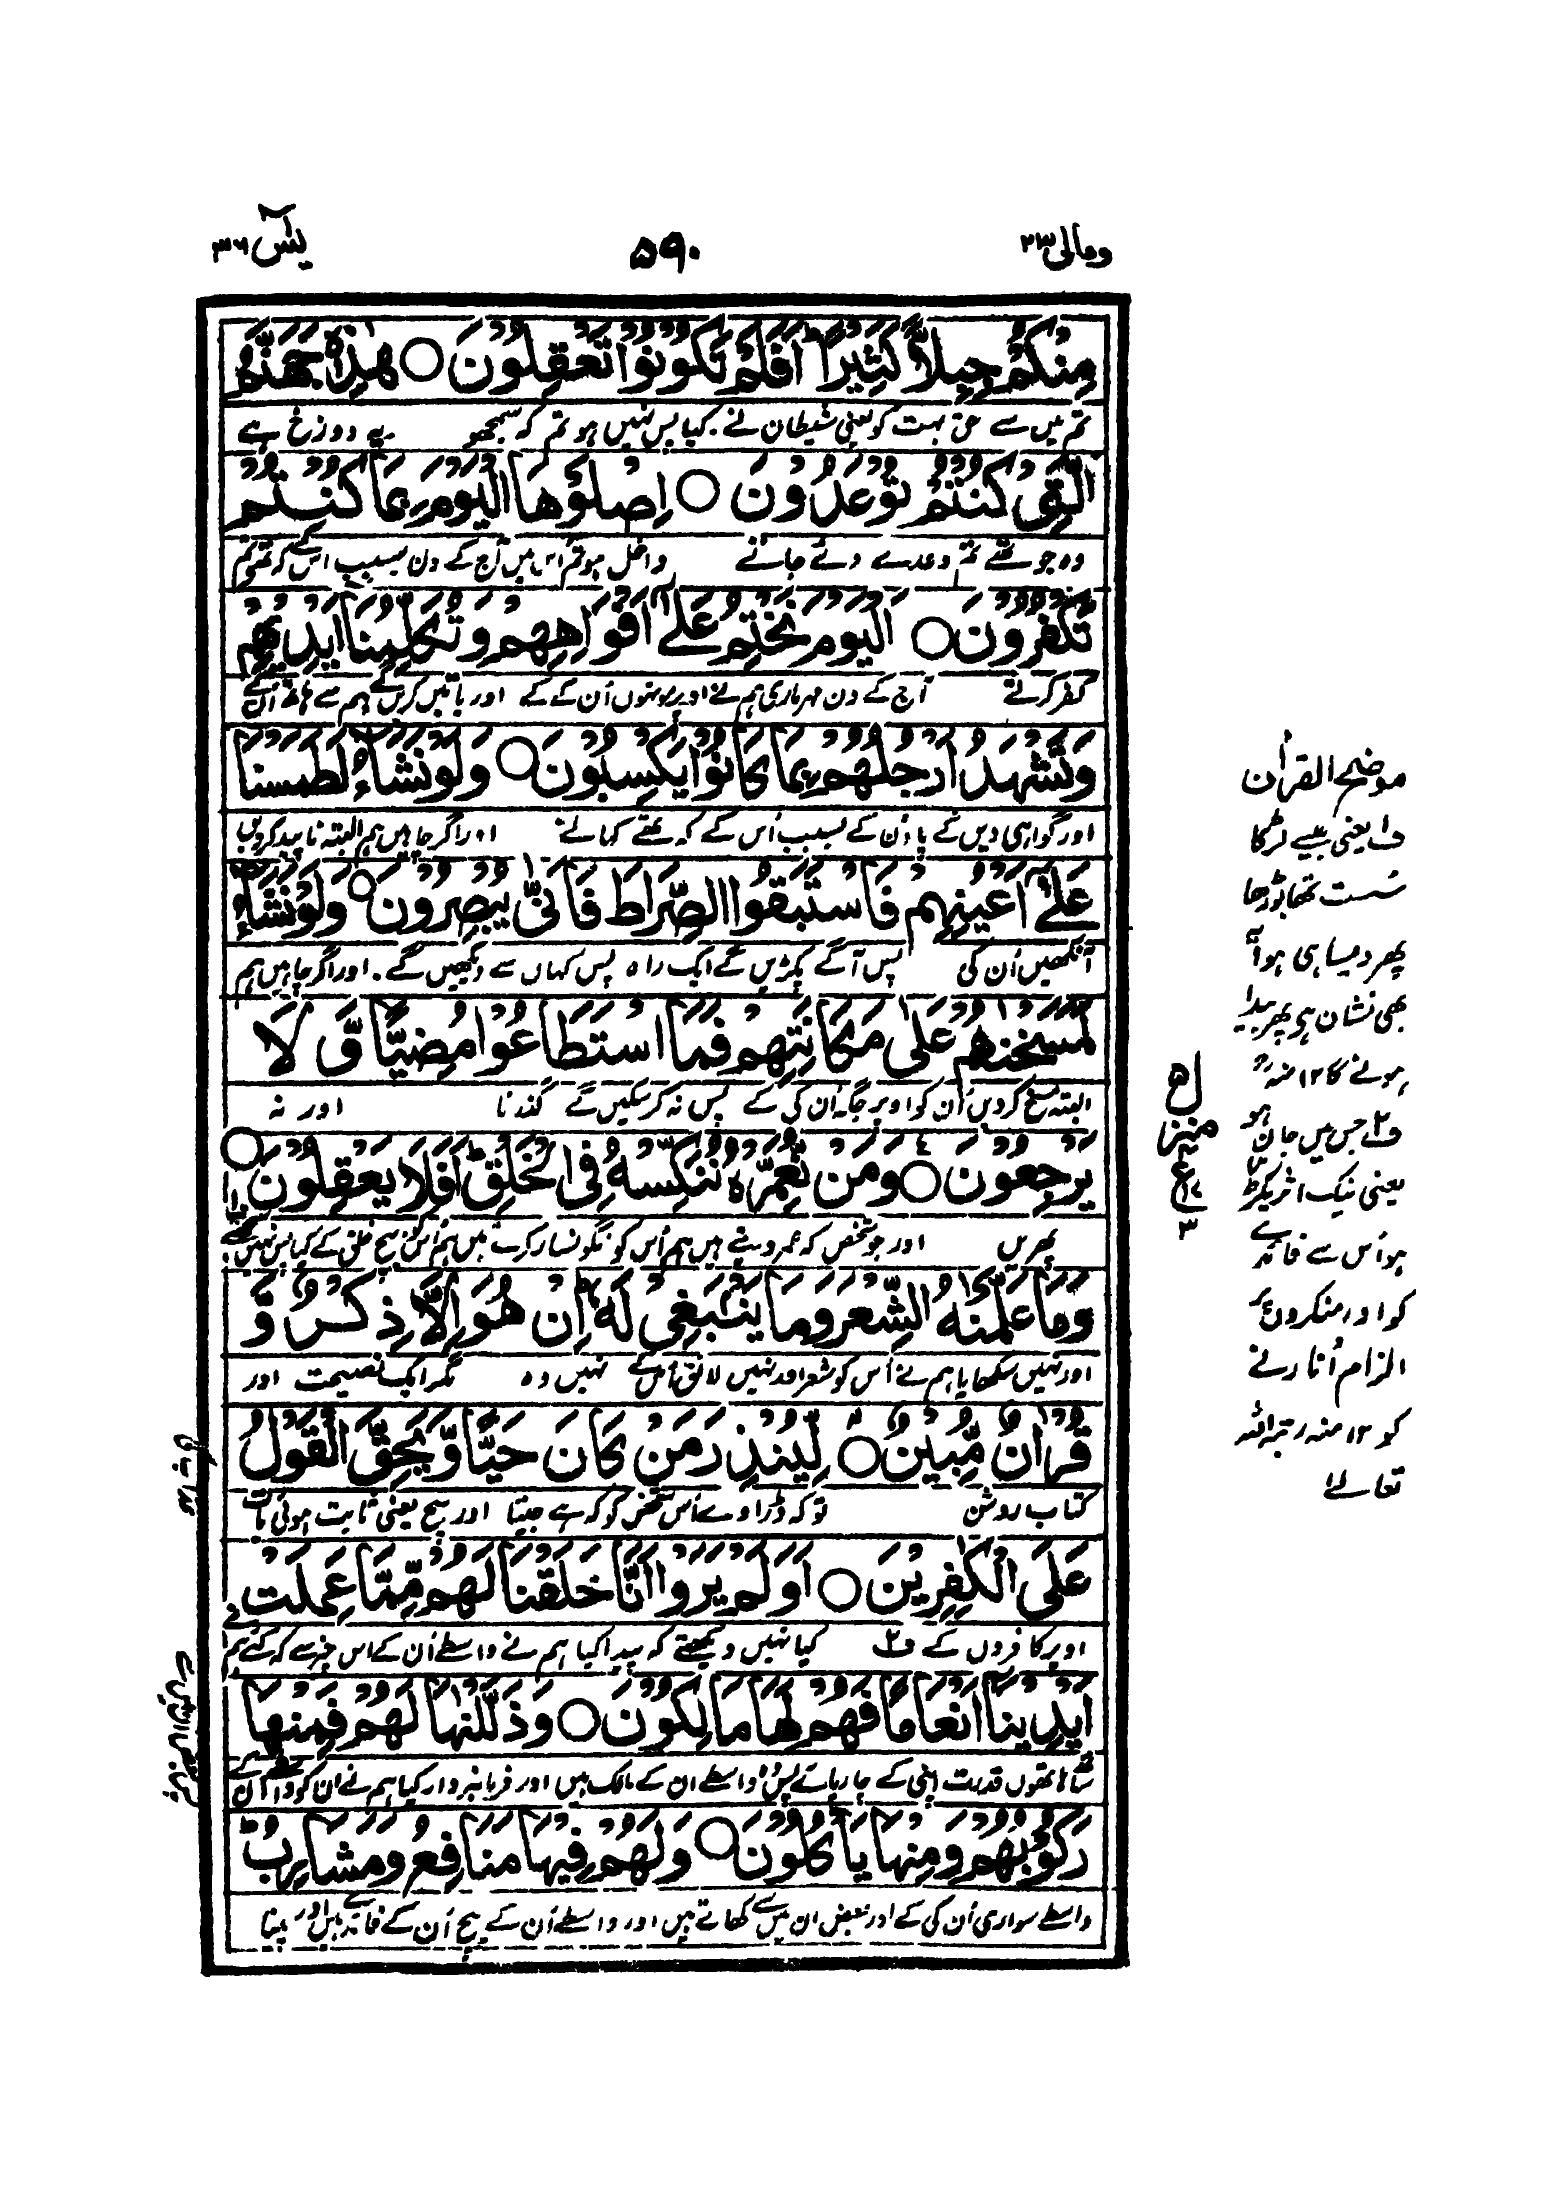 ومالی ۲۳
۵۹۰
یٰسٓ ۳۶
مِنْكُمْ جِبِلًّا كَثِيْرًا ؕ اَفَلَمْ تَكُوْنُوْا تَعْقِلُوْنَ ○ هٰذِهٖ جَهَنَّمُ
تم میں سے خلق بہت کو یعنی شیطان نے۔ کیا پس نہیں ہو تم کہ سمجھو یہ دوزخ ہے
الَّتِيْ كُنْتُمْ تُوْعَدُوْنَ ○ اِصْلَوْهَا الْيَوْمَ بِمَا كُنْتُمْ
وہ جو تھے تم وعدے دئے جاتے داخل ہو تم اس میں آج کے دن بسبب اس کے کہ تھے تم
تَكْفُرُوْنَ ○ اَلْيَوْمَ نَخْتِمُ عَلٰٓى اَفْوَاهِهِمْ وَتُكَلِّمُنَاۤ اَيْدِيْهِمْ
کفر کرتے آج کے دن مہر ماری ہم نے اوپر مونہوں اُن کے کے اور باتیں کریں گے ہم سے ہاتھ اُن کے
وَتَشْهَدُ اَرْجُلُهُمْ بِمَا كَانُوْا يَكْسِبُوْنَ ○ وَلَوْ نَشَآءُ لَطَمَسْنَا
اور گواہی دیں گے پاؤں اُن کے بسبب اُس کے کہ تھے کماتے اور اگر چاہیں ہم البتہ ناپید کردیں
عَلٰٓى اَعْيُنِهِمْ فَاسْتَبَقُوا الصِّرَاطَ فَاَنّٰى يُبْصِرُوْنَ ○ وَلَوْ نَشَآءُ
آنکھیں اُن کی پس آگے پکڑیں گے ایک راہ پس کہاں سے دیکھیں گے۔ اور اگر چاہیں ہم
لَمَسَخْنٰهُمْ عَلٰى مَكَانَتِهِمْ فَمَا اسْتَطَاعُوْا مُضِيًّا وَّ لَا
البتہ مسخ کردیں اُن کو اوپر جگہ اُن کی کے پس نہ کرسکیں گے گذرنا اور نہ
يَرْجِعُوْنَ ○ وَمَنْ نُّعَمِّرْهُ نُنَكِّسْهُ فِى الْخَلْقِ ؕ اَفَلَا يَعْقِلُوْنَ ○
پھریں اور جو شخص کہ عمر دیتے ہیں ہم اُس کو نگونسار کرتے ہیں ہم اُس کو بیچ خلق کے کیا پس نہیں سمجھتے
وَمَا عَلَّمْنٰهُ الشِّعْرَ وَمَا يَنْۢبَغِيْ لَهٗ ؕ اِنْ هُوَ اِلَّا ذِكْرٌ وَّ
اور نہیں سکھایا ہم نے اُس کو شعر اور نہیں لائق اُس کے نہیں وہ مگر ایک نصیحت اور
قُرْاٰنٌ مُّبِيْنٌ ○ لِّيُنْذِرَ مَنْ كَانَ حَيًّا وَّيَحِقَّ الْقَوْلُ
کتاب روشن توکہ ڈراوے اُس شخص کو کہ ہے جیتا اور سچ یعنی ثابت ہوئی بات
عَلَى الْكٰفِرِيْنَ ○ اَوَلَمْ يَرَوْا اَنَّا خَلَقْنَا لَهُمْ مِّمَّا عَمِلَتْ
اوپر کافروں کے ف۲ کیا نہیں دیکھتے کہ پیدا کیا ہم نے واسطے اُن کے اس چیز سے کہ کئے ہم نے
اَيْدِيْنَاۤ اَنْعَامًا فَهُمْ لَهَا مَالِكُوْنَ ○ وَذَلَّلْنٰهَا لَهُمْ فَمِنْهَا
ساتھ ہاتھوں قدرت اپنی کے چارپائے پس وہ واسطے ان کے مالک ہیں اور فرمانبردار کیا ہم نے ان کو واسطے ان کے
رَكُوْبُهُمْ وَمِنْهَا يَأْكُلُوْنَ ○ وَلَهُمْ فِيْهَا مَنَافِعُ وَمَشَارِبُ ؕ
واسطے سواری اُن کی کے اور بعض ان میں سے کھاتے ہیں اور واسطے اُن کے بیچ اُن کے فائدے ہیں اور پینا
موضح القرآن
ف۱ یعنی جیسے لڑکا
سست تھا بوڑھا
پھر ویسا ہی ہوا یہ
بھی نشان ہے پھر پیدا
ہونے کا ۱۲ منہ رح
ف۲ جس میں جان ہو
یعنی نیک اثر پکڑتا
ہو اُس سے فائدے
کو اور منکروں پر
الزام اُتارنے
کو ۱۲ منہ رحمۃ اللہ
تعالےٰ
منزل ۵
ع
۳